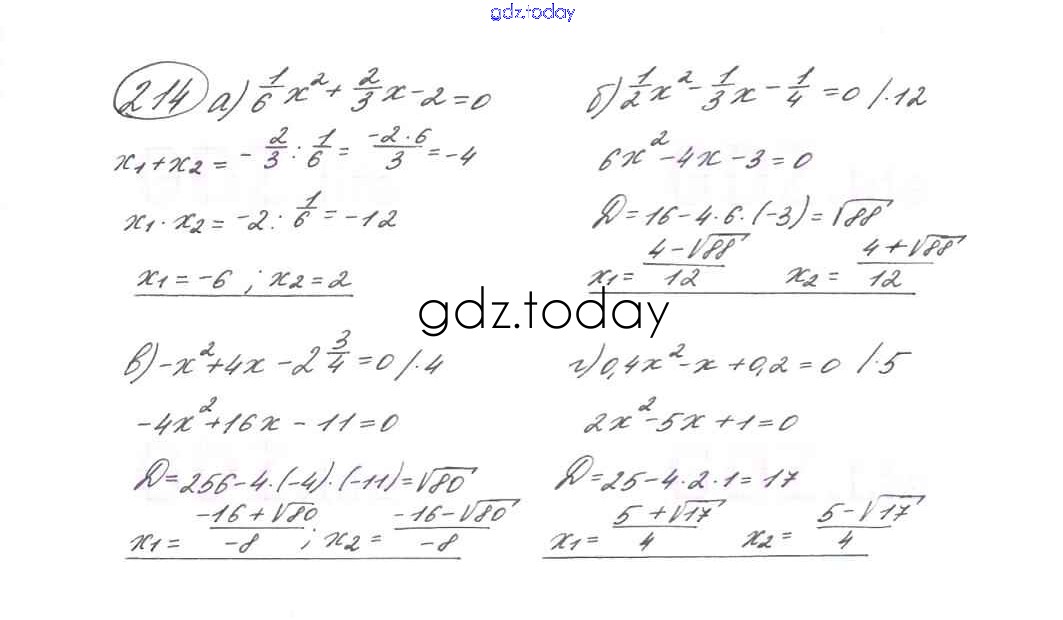 gdz.today
214 а) 1/6 x² + 2/3 x - 2 = 0
x₁ + x₂ = - 2/3 : 1/6 = -2·6/3 = -4
x₁ · x₂ = -2 : 1/6 = -12
x₁ = -6 ; x₂ = 2
б) 1/2 x² - 1/3 x - 1/4 = 0 /·12
6x² - 4x - 3 = 0
D = 16 - 4·6·(-3) = √88
x₁ = 4-√88/12 x₂ = 4+√88/12
gdz.today
в) -x² + 4x - 2 3/4 = 0 /·4
-4x² + 16x - 11 = 0
D = 256 - 4·(-4)·(-11) = √80
x₁ = -16+√80/-8 ; x₂ = -16-√80/-8
г) 0,4x² - x + 0,2 = 0 /·5
2x² - 5x + 1 = 0
D = 25 - 4·2·1 = 17
x₁ = 5+√17/4 x₂ = 5-√17/4